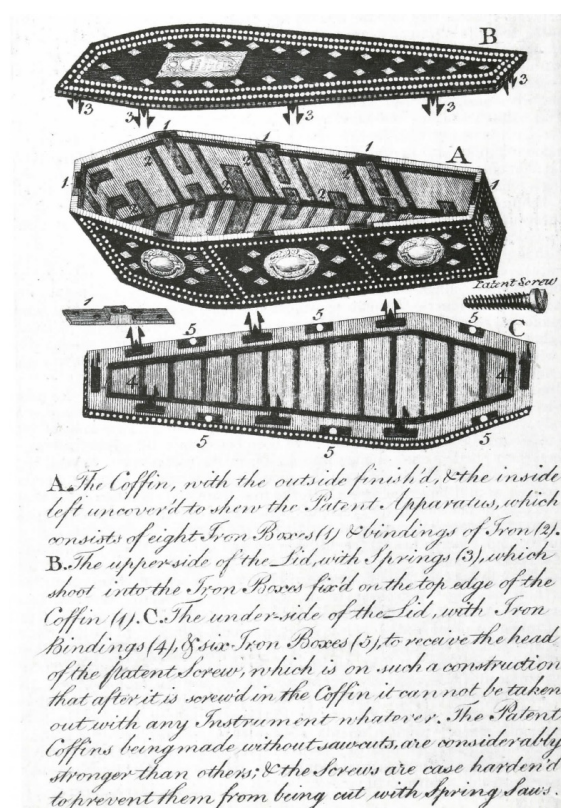 B
3 3 3 3 3
A
1 1 1 1 1
2 2 2 2 2
Patent Screw
1
C
5 5 5
4 4
5 5 5
A. The Coffin, with the outside finish'd, & the inside
left uncover'd to shew the Patent Apparatus, which
consists of eight Iron Boxes (1) & bindings of Iron (2).
B. The upper side of the Lid, with Springs (3), which
shoot into the Iron Boxes fix'd on the top edge of the
Coffin (1). C. The under-side of the Lid, with Iron
Bindings (4), & six Iron Boxes (5), to receive the head
of the patent Screw, which is on such a construction
that after it is screw'd in the Coffin it can not be taken
out with any Instrument whatever. The Patent
Coffins being made without saw-cuts, are considerably
stronger than others; & the Screws are case harden'd
to prevent them from being cut with Spring Saws.